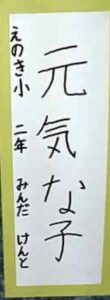 元気な子
えのき小 二年 みんだ けんと